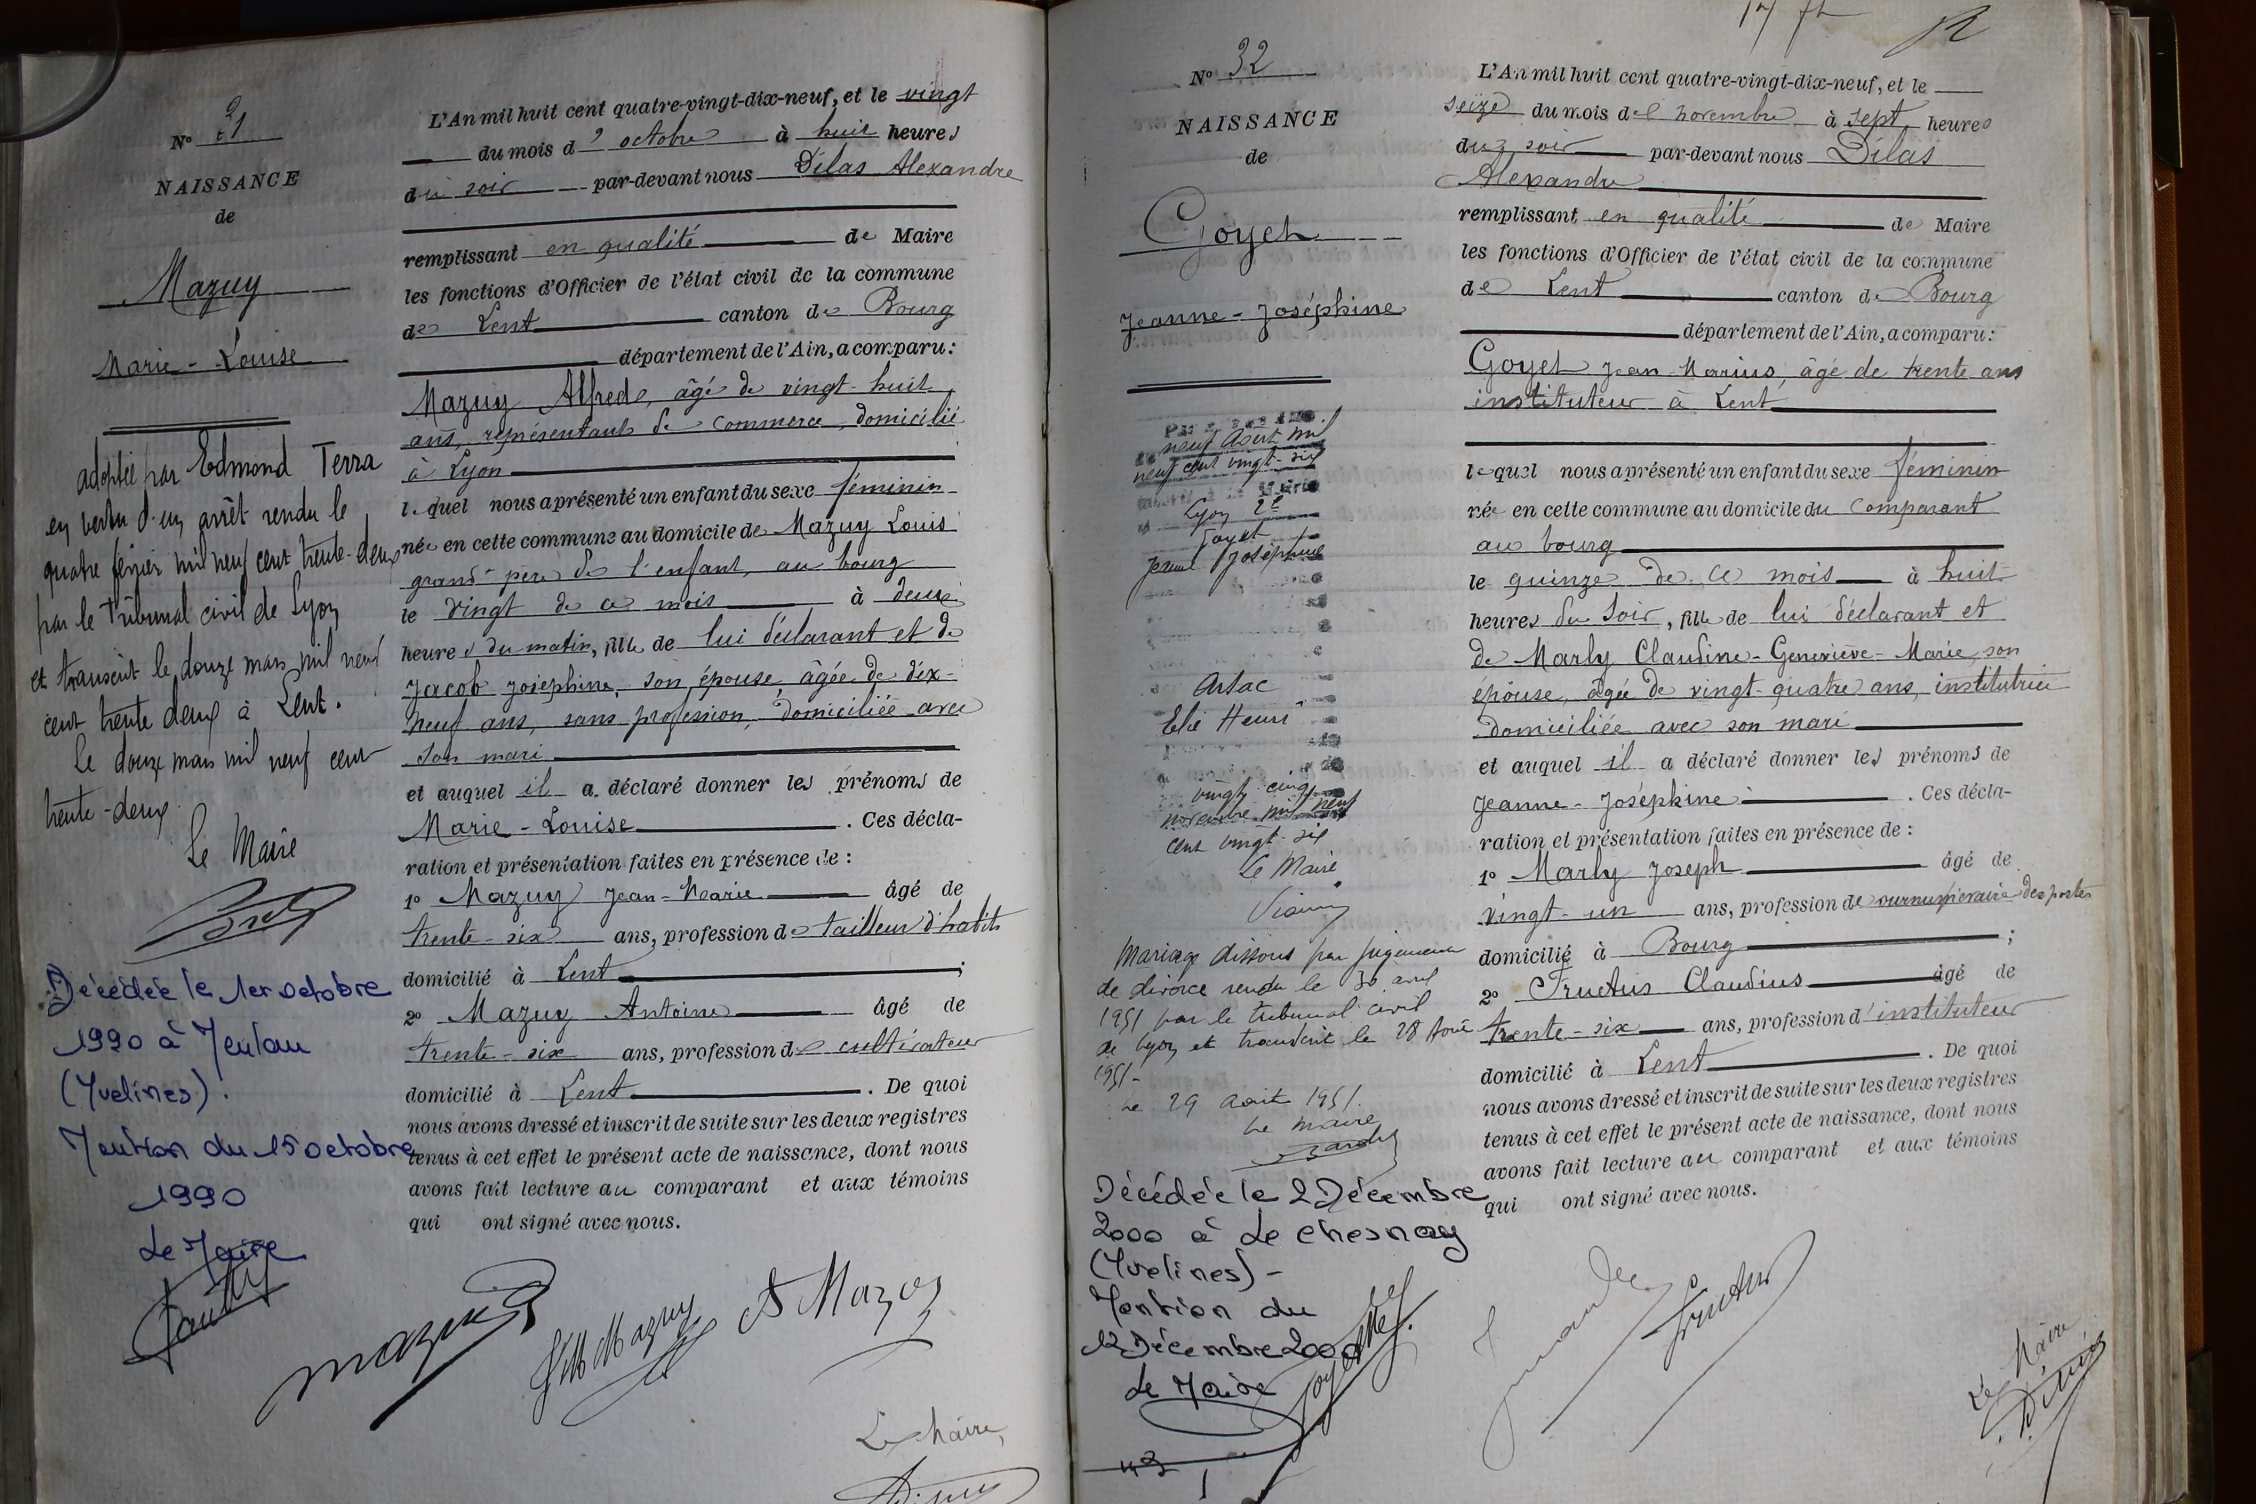 N° 31
NAISSANCE
de
Mazuy
Marie-Louise
adoptée par Edmond Terra
en vertu d'un arrêt rendu le
quatre février mil neuf cent trente-deux
par le Tribunal civil de Lyon
et transcrit le douze mars mil neuf
cent trente deux à Lent.
Le douze mars mil neuf cent
trente-deux
Le Maire
Décédée le 1er octobre
1990 à Meulan
(Yvelines).
Mention du 15 octobre
1990
Le Maire
L'An mil huit cent quatre-vingt-dix-neuf, et le vingt
du mois d'octobre à huit heures
du soir par-devant nous Dilas Alexandre
remplissant en qualité de Maire
les fonctions d'Officier de l'état civil de la commune
de Lent canton de Bourg
département de l'Ain, a comparu:
Mazuy Alfred, âgé de vingt-huit
ans, représentant de commerce, domicilié
à Lyon
lequel nous a présenté un enfant du sexe féminin
née en cette commune au domicile de Mazuy Louis
grand-père de l'enfant, au bourg
le vingt de ce mois à deux
heures du matin, fille de lui déclarant et de
Jacob Joséphine, son épouse, âgée de dix-
neuf ans, sans profession, domiciliée avec
son mari
et auquel il a déclaré donner les prénoms de
Marie-Louise. Ces décla-
ration et présentation faites en présence de:
1° Mazuy Jean-Marie âgé de
trente-six ans, profession de tailleur d'habits
domicilié à Lent;
2° Mazuy Antoine âgé de
trente-six ans, profession de cultivateur
domicilié à Lent. De quoi
nous avons dressé et inscrit de suite sur les deux registres
tenus à cet effet le présent acte de naissance, dont nous
avons fait lecture au comparant et aux témoins
qui ont signé avec nous.
Mazuy
JM Mazuy
A Mazuy
Le Maire,
N° 32
NAISSANCE
de
Goyet
Jeanne-Joséphine
neuf Août mil
neuf cent vingt-six
Lyon 2e
Goyet
Jeanne Joséphine
Arsac
Elie Henri
vingt cinq
novembre mil neuf
cent vingt-six
Le Maire
Mariage dissous par jugement
de divorce rendu le 30 avril
1951 par le tribunal civil
de Lyon et transcrit le 28 Août
1951-
Le 29 août 1951.
Le Maire
Décédée le 2 Décembre
2000 à Le Chesnay
(Yvelines)-
Mention du
12 Décembre 2000
Le Maire
L'An mil huit cent quatre-vingt-dix-neuf, et le
seize du mois de novembre à sept heures
du soir par-devant nous Dilas
Alexandre
remplissant en qualité de Maire
les fonctions d'Officier de l'état civil de la commune
de Lent canton de Bourg
département de l'Ain, a comparu:
Goyet Jean Marius, âgé de trente ans
instituteur à Lent
lequel nous a présenté un enfant du sexe féminin
née en cette commune au domicile du comparant
au bourg
le quinze de ce mois à huit
heures du soir, fille de lui déclarant et
de Marly Claudine-Geneviève-Marie, son
épouse, âgée de vingt-quatre ans, institutrice
domiciliée avec son mari
et auquel il a déclaré donner les prénoms de
Jeanne-Joséphine. Ces décla-
ration et présentation faites en présence de:
1° Marly Joseph âgé de
vingt-un ans, profession de surnuméraire des postes
domicilié à Bourg;
2° Fructus Claudius âgé de
trente-six ans, profession d'instituteur
domicilié à Lent. De quoi
nous avons dressé et inscrit de suite sur les deux registres
tenus à cet effet le présent acte de naissance, dont nous
avons fait lecture au comparant et aux témoins
qui ont signé avec nous.
Fructus
Le Maire
Dilas